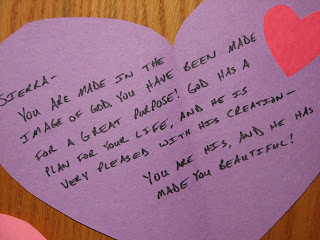 SIERRA-
YOU ARE MADE IN THE
IMAGE OF GOD. YOU HAVE BEEN MADE
FOR A GREAT PURPOSE! GOD HAS A
PLAN FOR YOUR LIFE, AND HE IS
VERY PLEASED WITH HIS CREATION-
YOU ARE HIS, AND HE HAS
MADE YOU BEAUTIFUL!